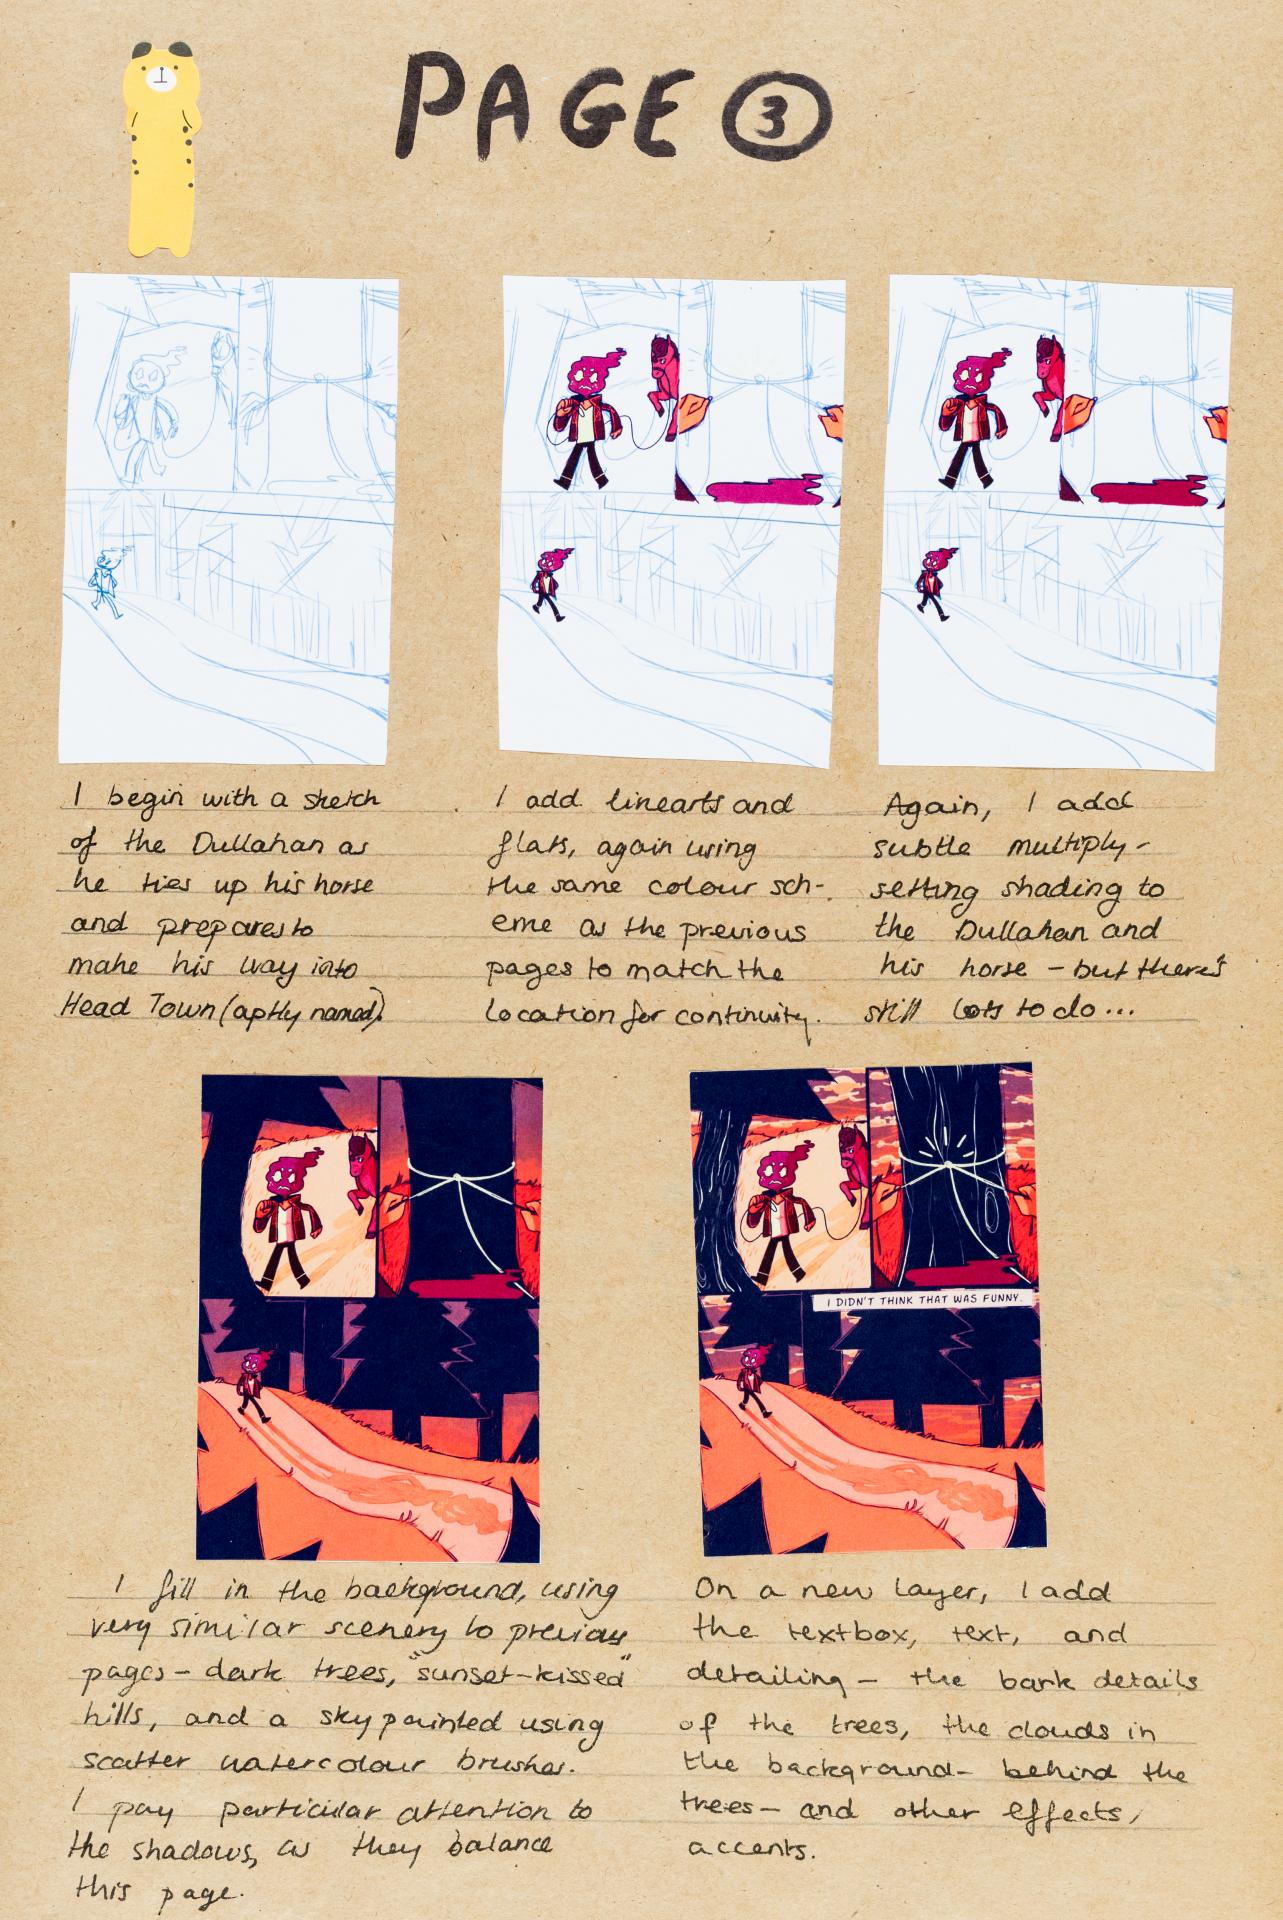 PAGE 3
I begin with a sketch
of the Dullahan as
he ties up his horse
and prepares to
make his way into
Head Town (aptly named).
I add linearts and
flats, again using
the same colour sch-
eme as the previous
pages to match the
location for continuity.
Again, I add
subtle multiply-
setting shading to
the Dullahan and
his horse - but there's
still lots to do...
I DIDN'T THINK THAT WAS FUNNY.
I fill in the background, using
very similar scenery to previous
pages - dark trees, "sunset-kissed"
hills, and a sky painted using
scatter watercolour brushes.
I pay particular attention to
the shadows, as they balance
this page.
On a new layer, I add
the textbox, text, and
detailing - the bark details
of the trees, the clouds in
the background - behind the
trees - and other effects,
accents.